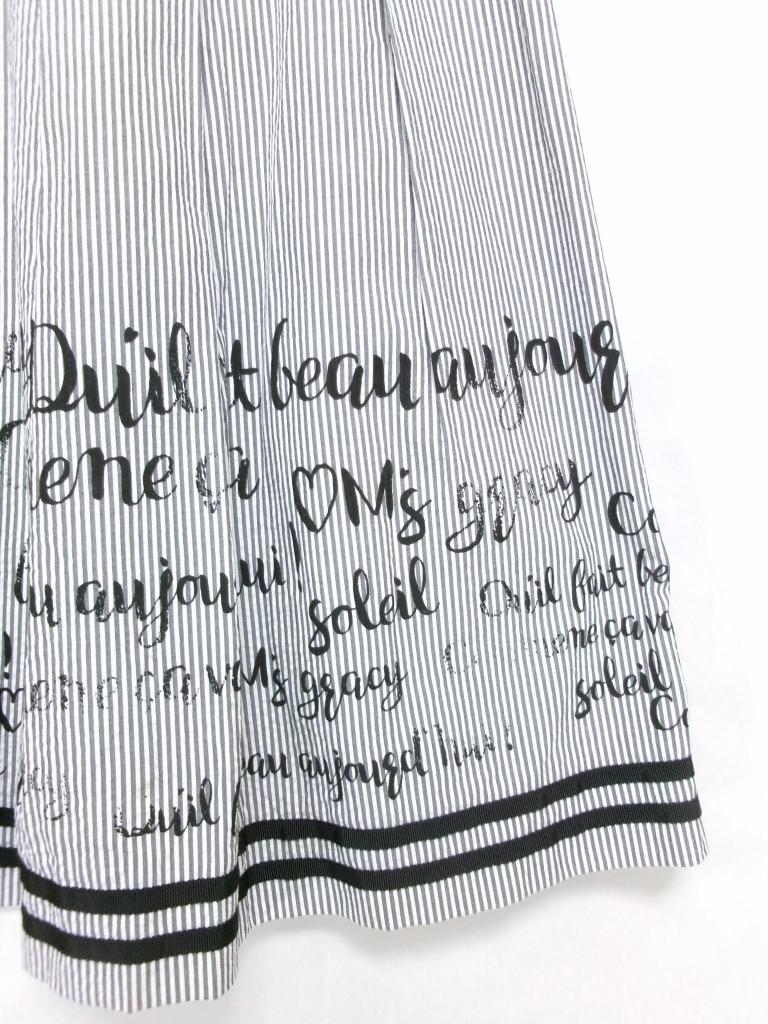 Qu'il t beau aujour
ene ça
♡M's gracy
Co
u aujou ui!
soleil
Qu'il fait be
ene ça v
M's gracy
ne ça va
soleil
Co
au aujourd'hui!
Qu'il